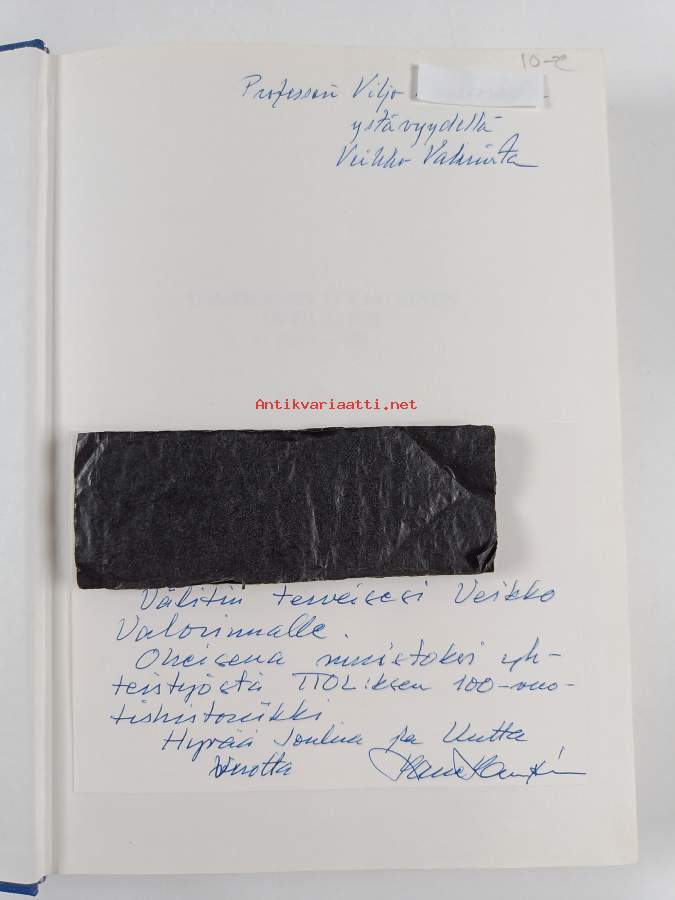 10-€
Professori Viljo
ystävyydellä
Veikko Valorinta
Antikvariaatti.net
Välitin terveisesi Veikko
Valorinnalle.
Oheisena muistoksi yh-
teistyöstä TTOL:ksen 100-vuo-
tishistoriikki
Hyvää Joulua ja Uutta
Vuotta